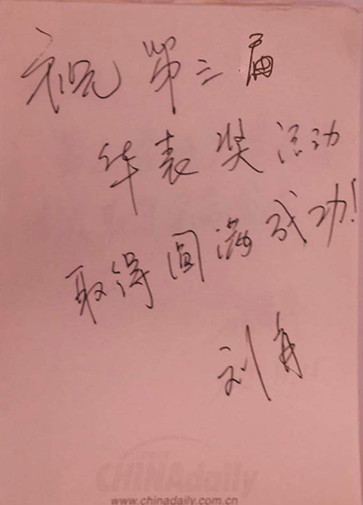 祝第三届
华表奖活动
取得圆满成功!
刘
CHINAdaily
www.chinadaily.com.cn